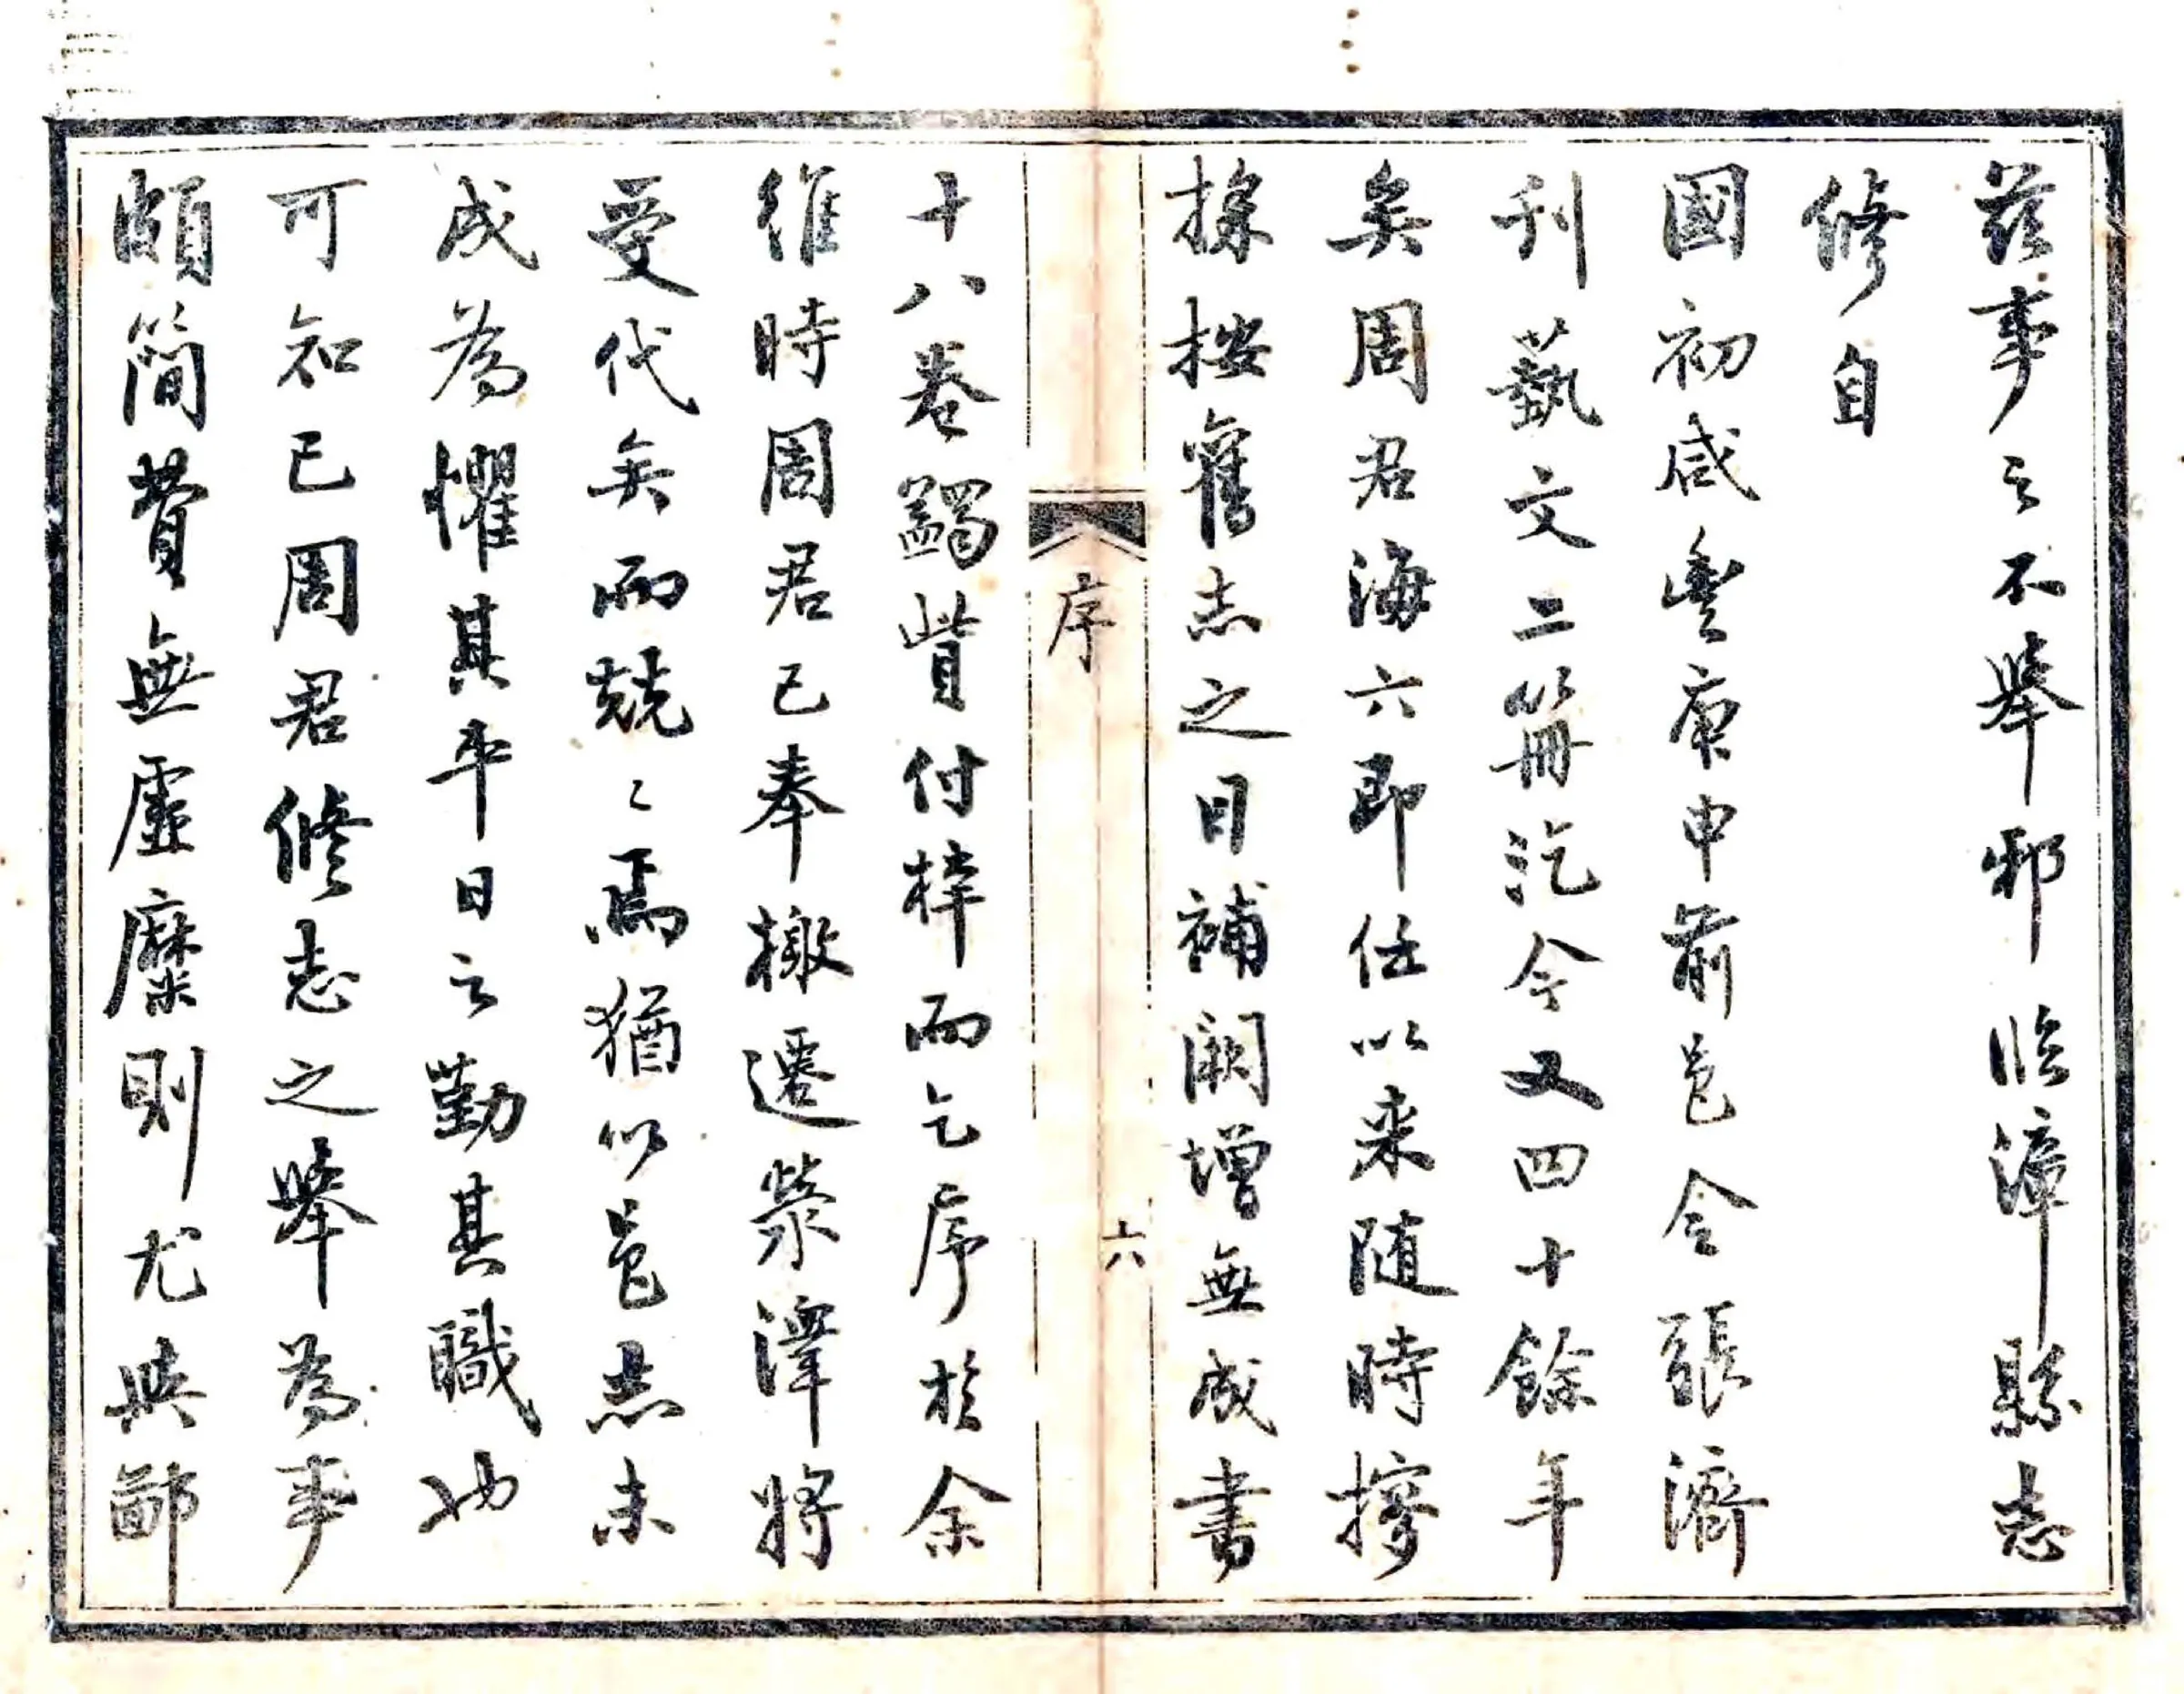 茲事之不舉邪臨漳縣志
修自
國初咸豐庚申前邑令張濟
刊藝文二冊迄今又四十餘年
矣周君海六即任以來随時搜
採按舊志之目補闕增無成書
序
六
十八卷蠲貲付梓而乞序於余
維時周君已奉檄遷滎澤將
受代矣而兢〻焉猶以邑志未
成為懼其平日之勤其職也
可知已周君修志之舉為事
頗簡費無虛糜則尤與鄙